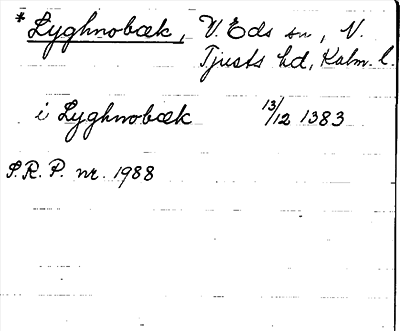 *Lyghnobæk, V. Eds sn, N.
Tjusts hd, Kalm. l.
i Lyghnobæk 13/12 1383
S.R.P. nr. 1988